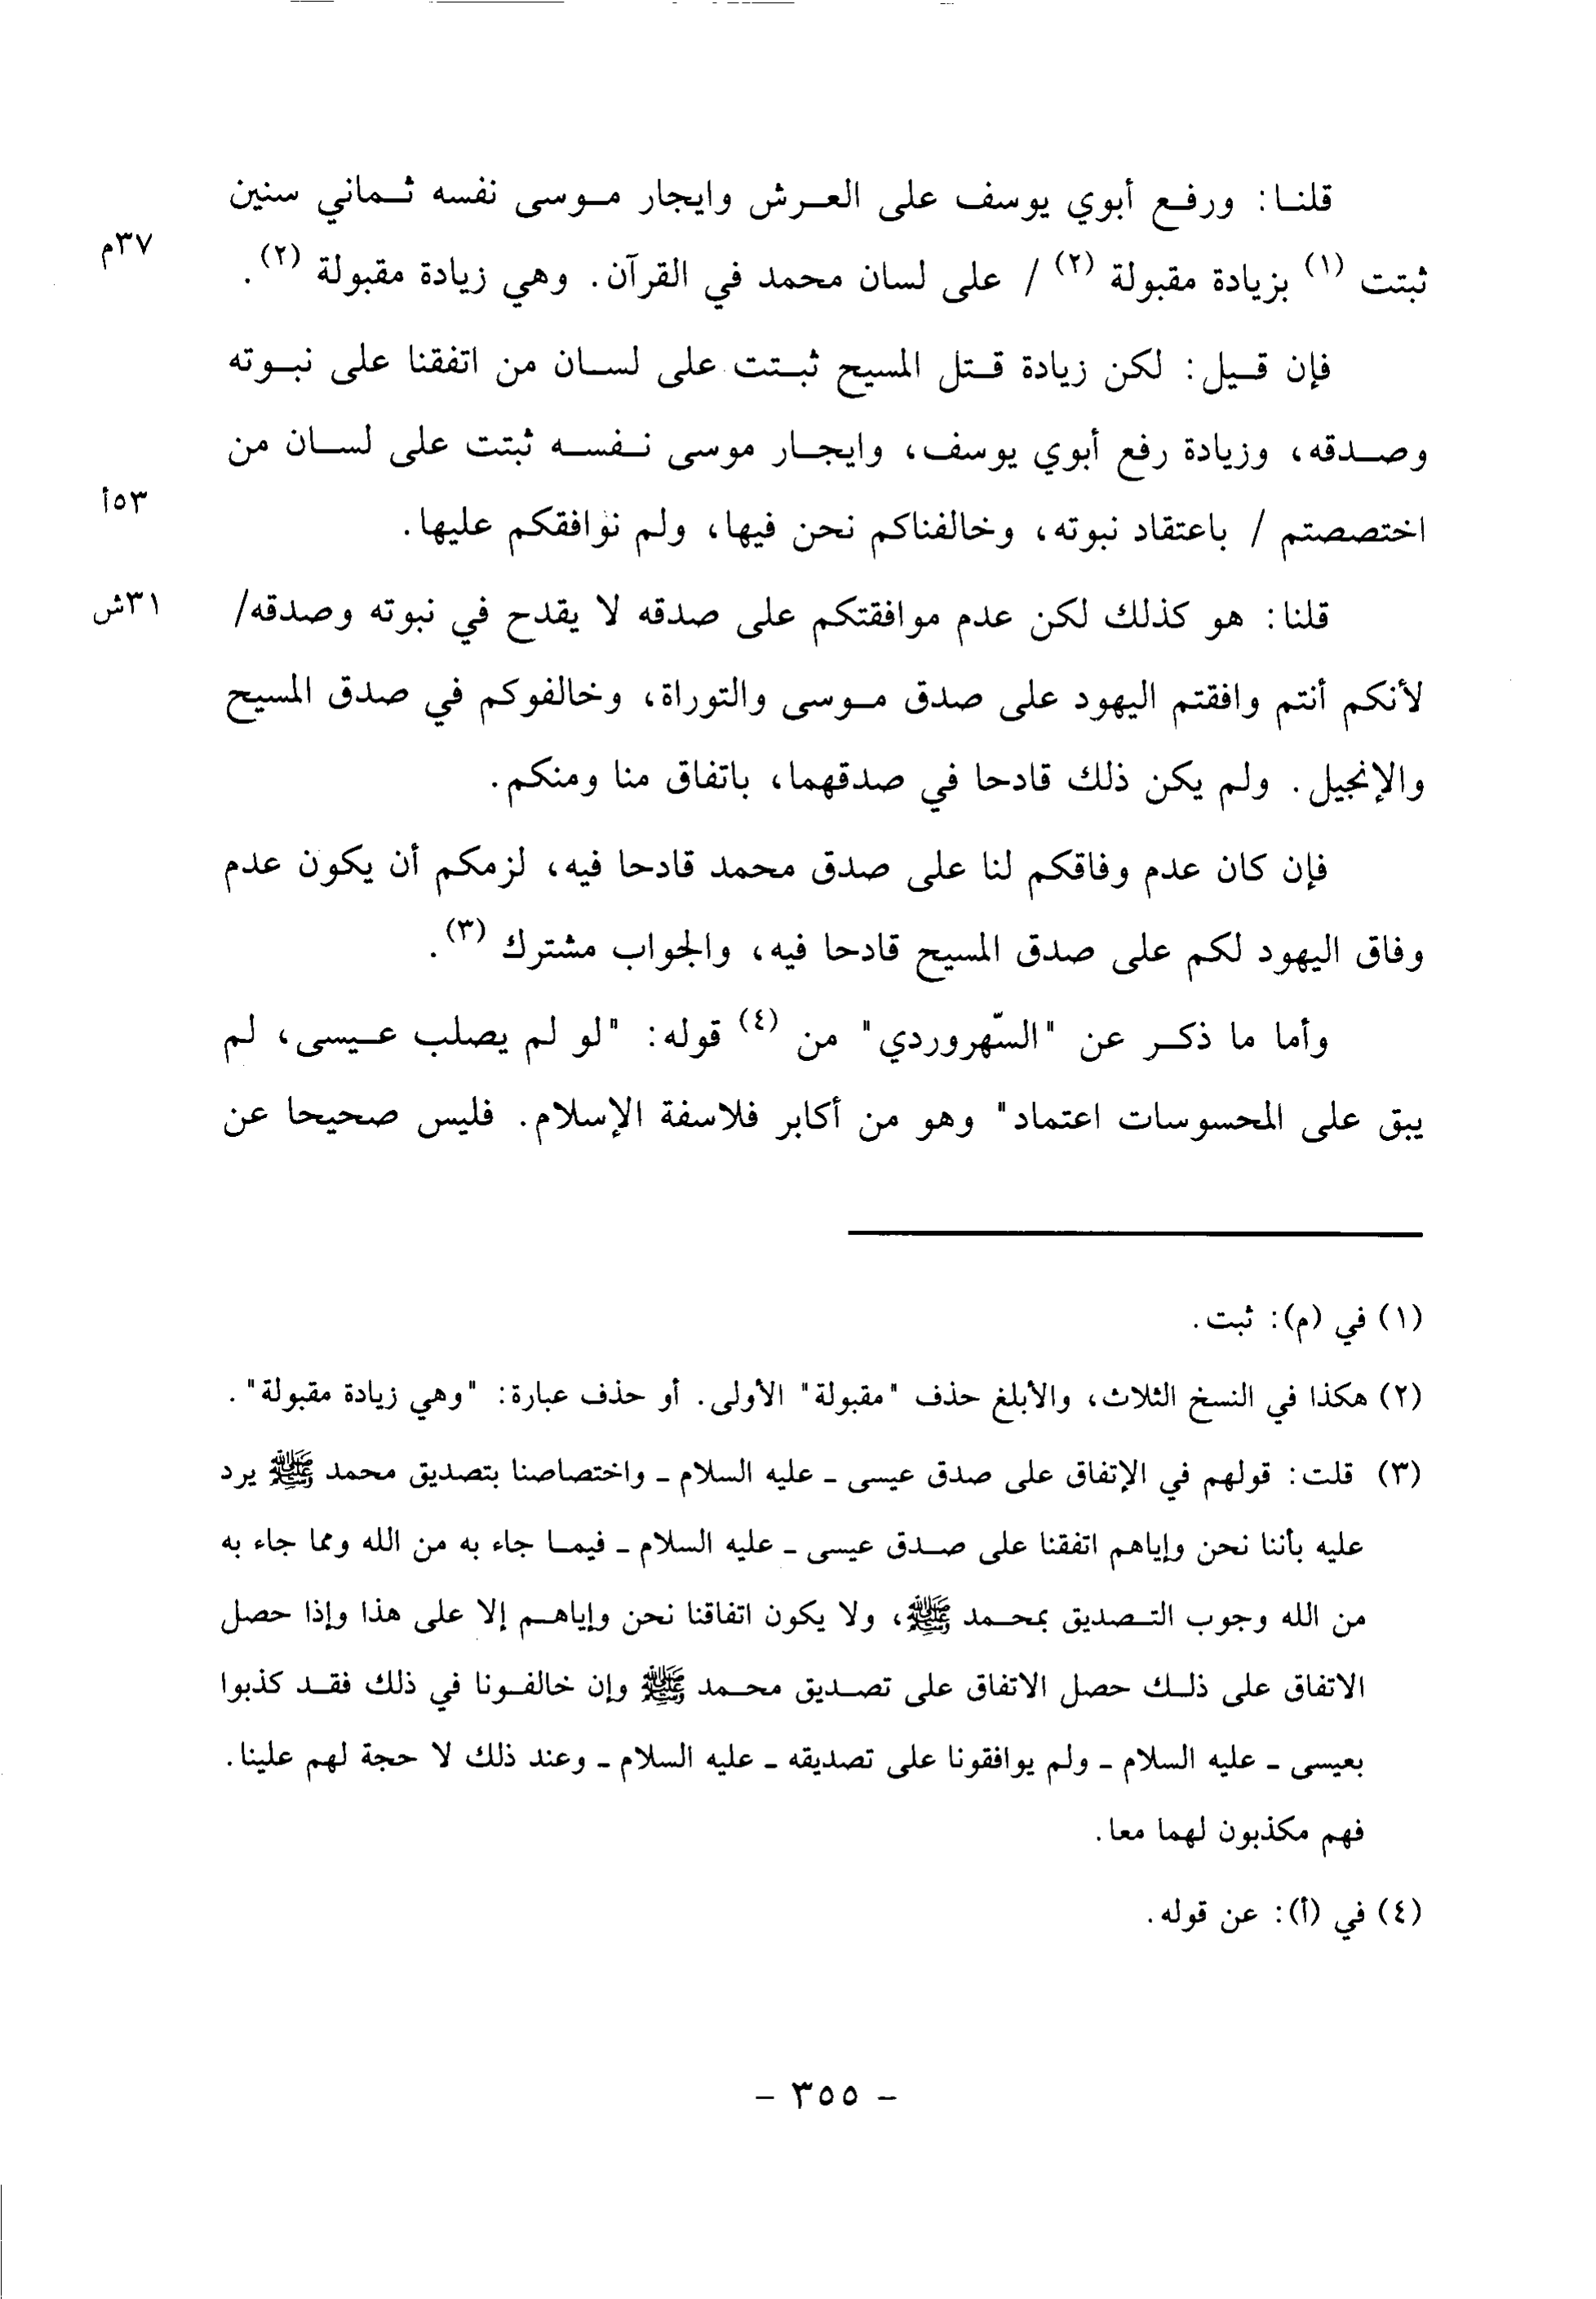 قلنا: ورفع أبوي يوسف على العرش وايجار موسى نفسه ثماني سنين
٣٧م
ثبتت (١) بزيادة مقبولة (٢) / على لسان محمد في القرآن. وهي زيادة مقبولة (٢).
فإن قيل: لكن زيادة قتل المسيح ثبتت على لسان من اتفقنا على نبوته
وصدقه، وزيادة رفع أبوي يوسف، وايجار موسى نفسه ثبتت على لسان من
٥٣أ
اختصصتم / باعتقاد نبوته، وخالفناكم نحن فيها، ولم نوافقكم عليها.
قلنا: هو كذلك لكن عدم موافقتكم على صدقه لا يقدح في نبوته وصدقه/
٣١ش
لأنكم أنتم وافقتم اليهود على صدق موسى والتوراة، وخالفوكم في صدق المسيح
والإنجيل. ولم يكن ذلك قادحا في صدقهما، باتفاق منا ومنكم.
فإن كان عدم وفاقكم لنا على صدق محمد قادحا فيه، لزمكم أن يكون عدم
وفاق اليهود لكم على صدق المسيح قادحا فيه، والجواب مشترك (٣).
وأما ما ذكر عن "السّهروردي" من (٤) قوله: "لو لم يصلب عيسى، لم
يبق على المحسوسات اعتماد" وهو من أكابر فلاسفة الإسلام. فليس صحيحا عن
(١) في (م): ثبت.
(٢) هكذا في النسخ الثلاث، والأبلغ حذف "مقبولة" الأولى. أو حذف عبارة: "وهي زيادة مقبولة".
(٣) قلت: قولهم في الإتفاق على صدق عيسى - عليه السلام - واختصاصنا بتصديق محمد ﷺ يرد
عليه بأننا نحن وإياهم اتفقنا على صدق عيسى - عليه السلام - فيما جاء به من الله ومما جاء به
من الله وجوب التصديق بمحمد ﷺ، ولا يكون اتفاقنا نحن وإياهم إلا على هذا وإذا حصل
الاتفاق على ذلك حصل الاتفاق على تصديق محمد ﷺ وإن خالفونا في ذلك فقد كذبوا
بعيسى - عليه السلام - ولم يوافقونا على تصديقه - عليه السلام - وعند ذلك لا حجة لهم علينا.
فهم مكذبون لهما معا.
(٤) في (أ): عن قوله.
- ٣٥٥ -